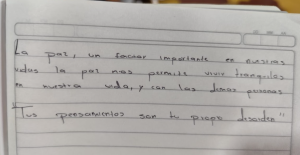 La paz, un factor importante en nuestras
vidas la paz nos permite vivir tranquilos
en nuestra vida, y con las demas personas
"Tus pensamientos son tu propio